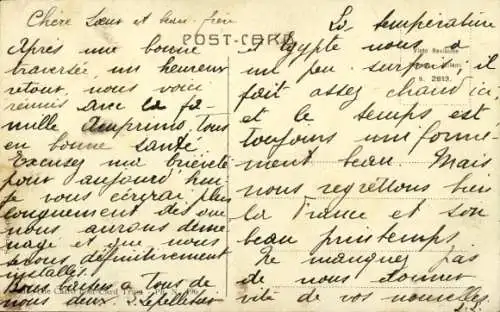 Chère Sœur et beau-frère
POST-CARD
Après une bonne
traversée, un heureux
retour, nous voici
réunis avec la fa-
mille tous
en bonne santé.
Excusez ma brièveté
pour aujourd'hui
je vous écrirai plus
longuement dès que
nous aurons démé-
nagé et que nous
serons définitivement
installés.
Bons baisers à tous de
nous deux. J. Lepelletier
The Cairo Post-Card Trust
La température
d'Egypte nous a
un peu surpris; il
fait assez chaud ici
et le temps est
toujours uniformé-
ment beau. Mais
nous regrettons bien
la France et son
beau printemps.
Ne manquez pas
de nous donner
vite de vos nouvelles.